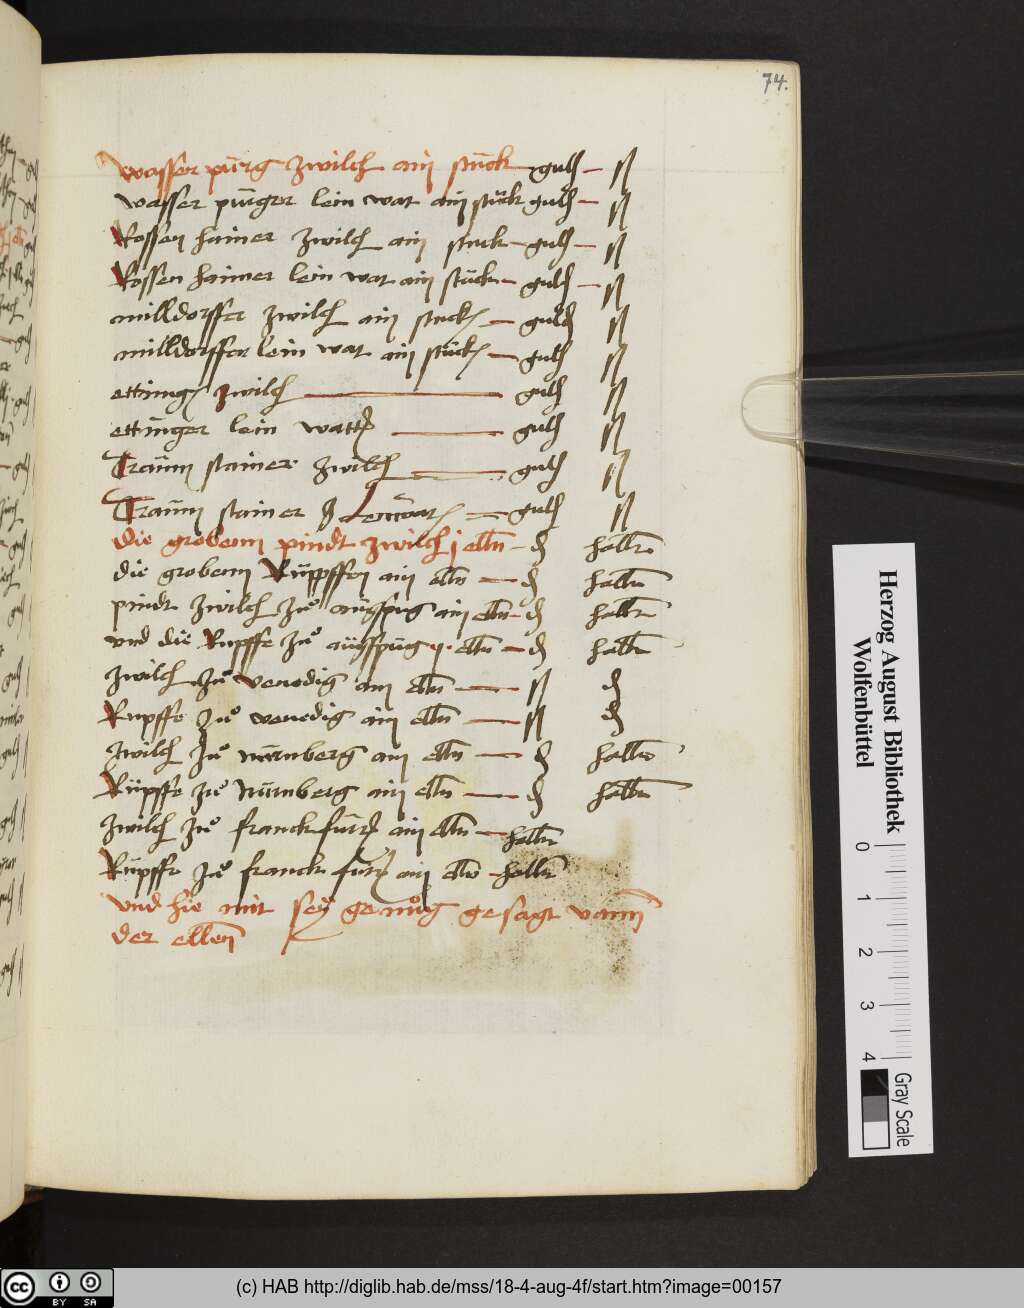 74.
wasser pürg zwilch ain stuck gulд – ß
wasser pürger lein wat ain stück guld – ß
Rossen hainer zwilch ain stuck – guld – ß
Rossen haimer lein wat ain stück – guld – ß
milldorffer zwilch ain stuck – guld ß
milldorffer lein wat ain stück – guld ß
ettinng zwilch — guld ß
ettinger lein watt — guld ß
Traün stainer zwilch — guld ß
Traün stainer — guld ß
die grobenn pindt zwilch j elln – d hallr
die grobenn Rüpffen ain elln — d hallr
pindt zwilch zů augspug ain elln – d hallr
und die Rupffe zů aügspüg elln – d hallr
zwilch zů venedig ain elln — ß d
Rupffe zů venedig ain elln — ß d
zwilch zů nürnberg ain elln — d hallr
Rüpffe zů Nürnberg ain elln — d hallr
zwilch zů franckfürt ain elln – hallr
Rüpffe zů franckfurt ain elln – hallr
und hie mit sey genůg gesagt vann
der ellen
Herzog August Bibliothek
Wolfenbüttel
0 1 2 3 4
Gray Scale
cc BY SA
(c) HAB http://diglib.hab.de/mss/18-4-aug-4f/start.htm?image=00157